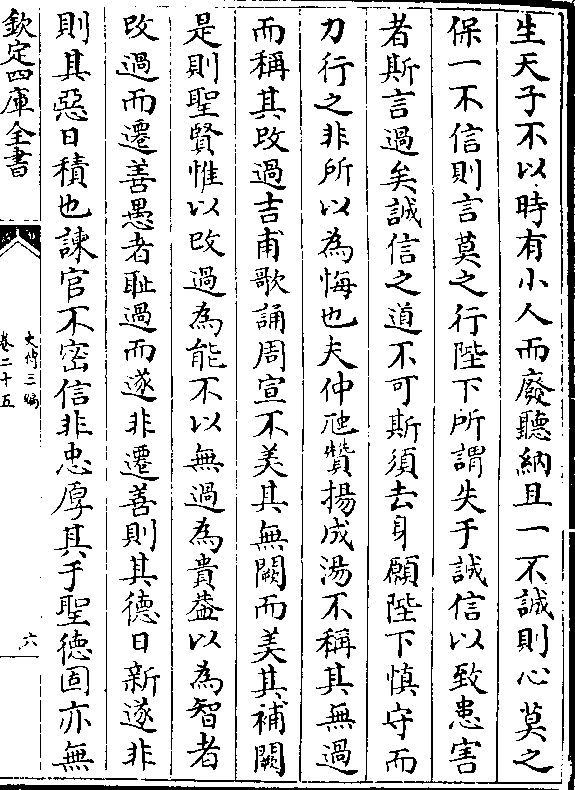 生天子不以時有小人而廢聽納且一不誠則心莫之
保一不信則言莫之行陛下所謂失于誠信以致患害
者斯言過矣誠信之道不可斯須去身願陛下慎守而
力行之非所以為悔也夫仲虺贊揚成湯不稱其無過
而稱其改過吉甫歌誦周宣不美其無闕而美其補闕
是則聖賢惟以改過為能不以無過為貴葢以為智者
改過而遷善愚者耻過而遂非遷善則其德日新遂非
則其惡日積也諫官不密信非忠厚其于聖德固亦無
欽定四庫全書
史傳三編
卷二十五
六